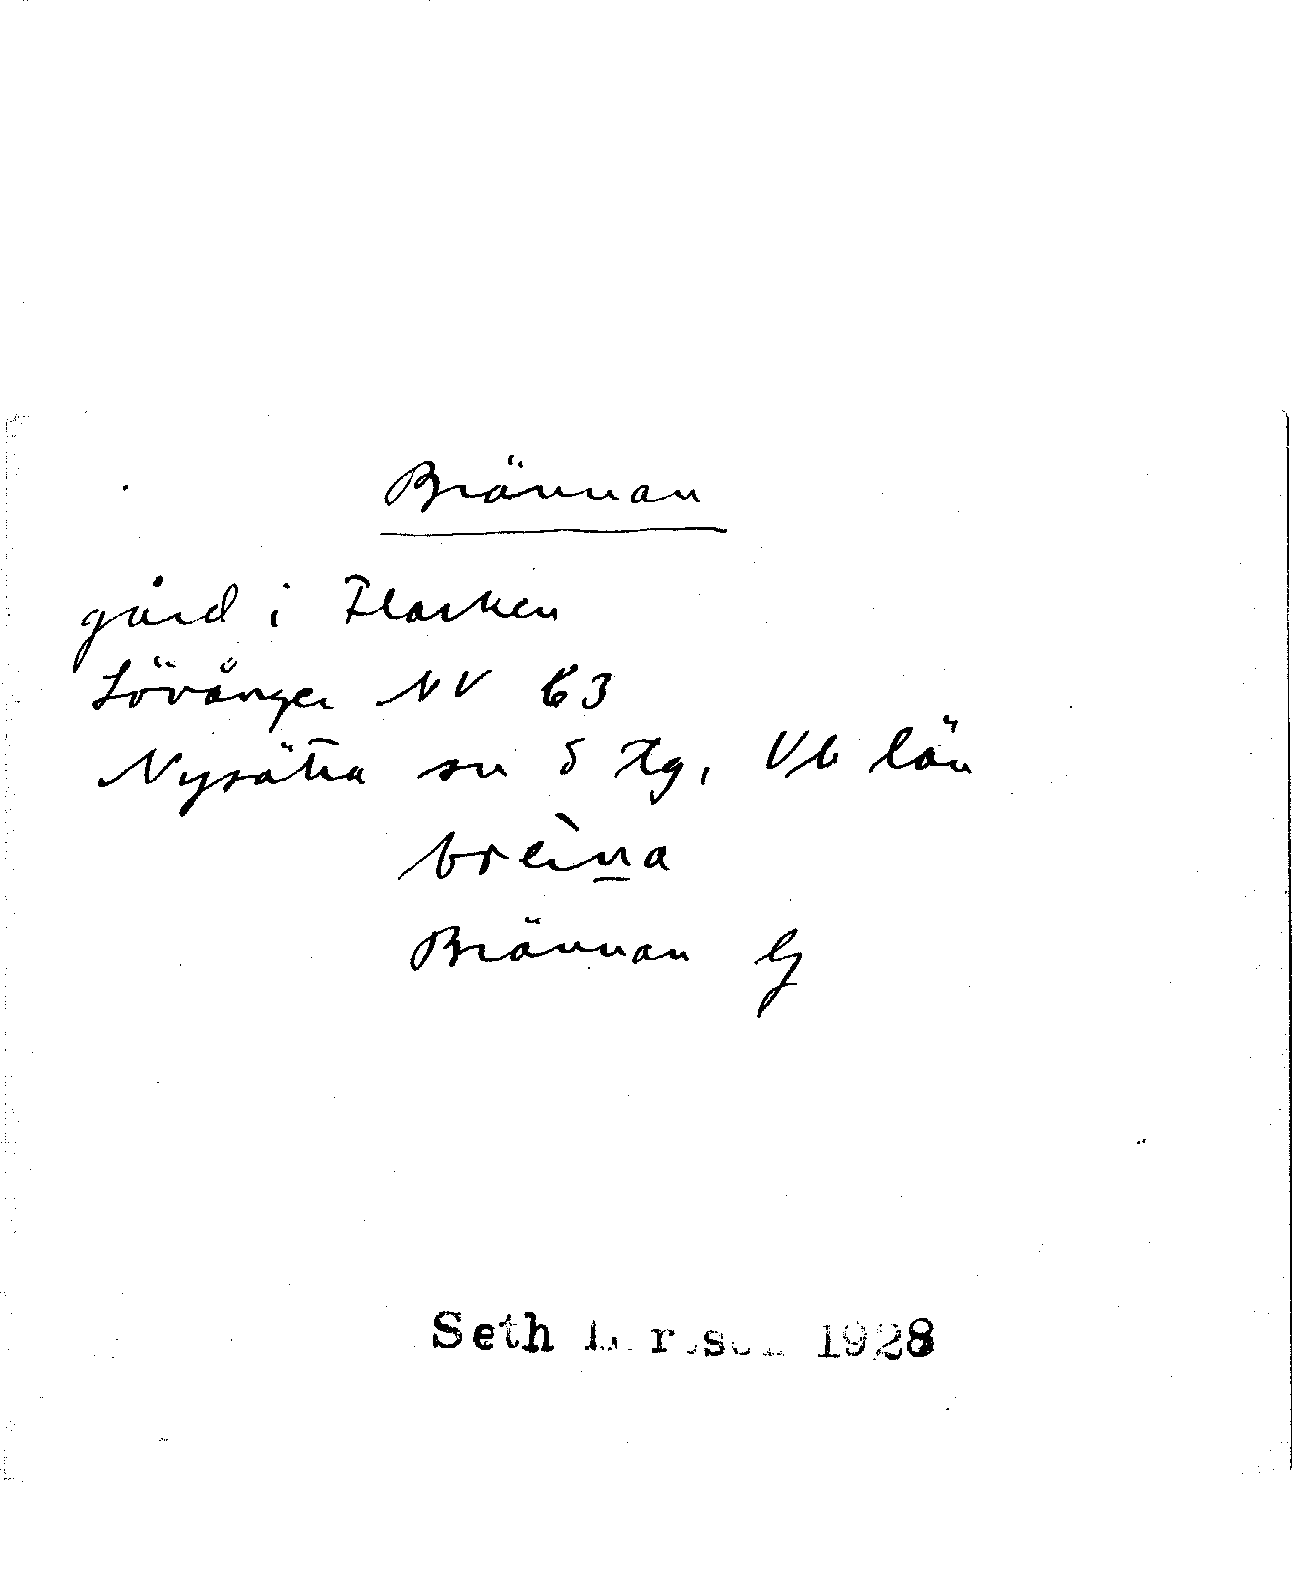 Brännan
gård i Flarken
Lövånger NV b3
Nysätra sn S tg, Vb län
brèi̲na
Brännan G
Seth 1928